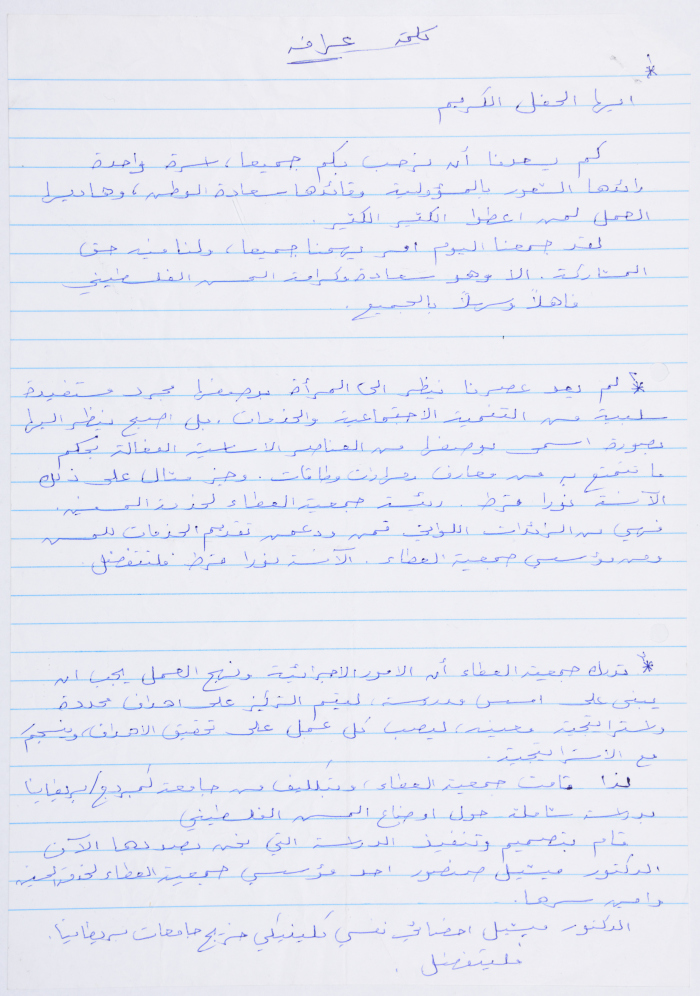 كلمة عرافه
*
ايها الحفل الكريم
كم يسعدنا أن نرحب بكم جميعا، اسرة واحدة
رائدها الشعور بالمسؤولية وقائدها سعادة الوطن، وهاديها
العمل لمن اعطوا الكثير الكثير.
لقد جمعنا اليوم امر يهمنا جميعا، ولنا فيه حق
المشاركة. الا وهو سعادة وكرامة المسن الفلسطيني
فاهلاً وسهلاً بالجميع.
* لم يعد عصرنا ينظر الى المرأة بوصفها مجرد مستفيدة
سلبية من التنمية الاجتماعية والخدمات، بل اصبح ينظر اليها
بصورة اسمى بوصفها من العناصر الاساسية الفعالة بحكم
ما تتمتع به من معارف ومهارات وطاقات. وخير مثال على ذلك
الآنسة نورا قرط. رئيسة جمعية العطاء لخدمة المسنين.
فهي من الرائدات اللواتي قمن ودعمن تقديم الخدمات للمسن
ومن مؤسسي جمعية العطاء. الآنسة نورا قرط فلتتفضل.
* تدرك جمعية العطاء أن الامور الاجرائية ونهج العمل يجب ان
يبنى على اسس مدروسة، ليتم التركيز على اهداف محددة
واستراتيجية معينه، ليصب كل عمل على تحقيق الاهداف، وينسجم
مع الاستراتيجية.
لذا قامت جمعية العطاء، وبتكليف من جامعة كمبردج/بريطانيا
بدراسة شاملة حول اوضاع المسن الفلسطيني
قام بتصميم وتنفيذ الدراسة التي نحن بصددها الآن
الدكتور ميشيل صنصور احد مؤسسي جمعية العطاء لخدمة المسنين
وامين سرها.
الدكتور ميشيل اخصائي نفسي كلينيكي خريج جامعات بريطانيا.
فليتفضل.